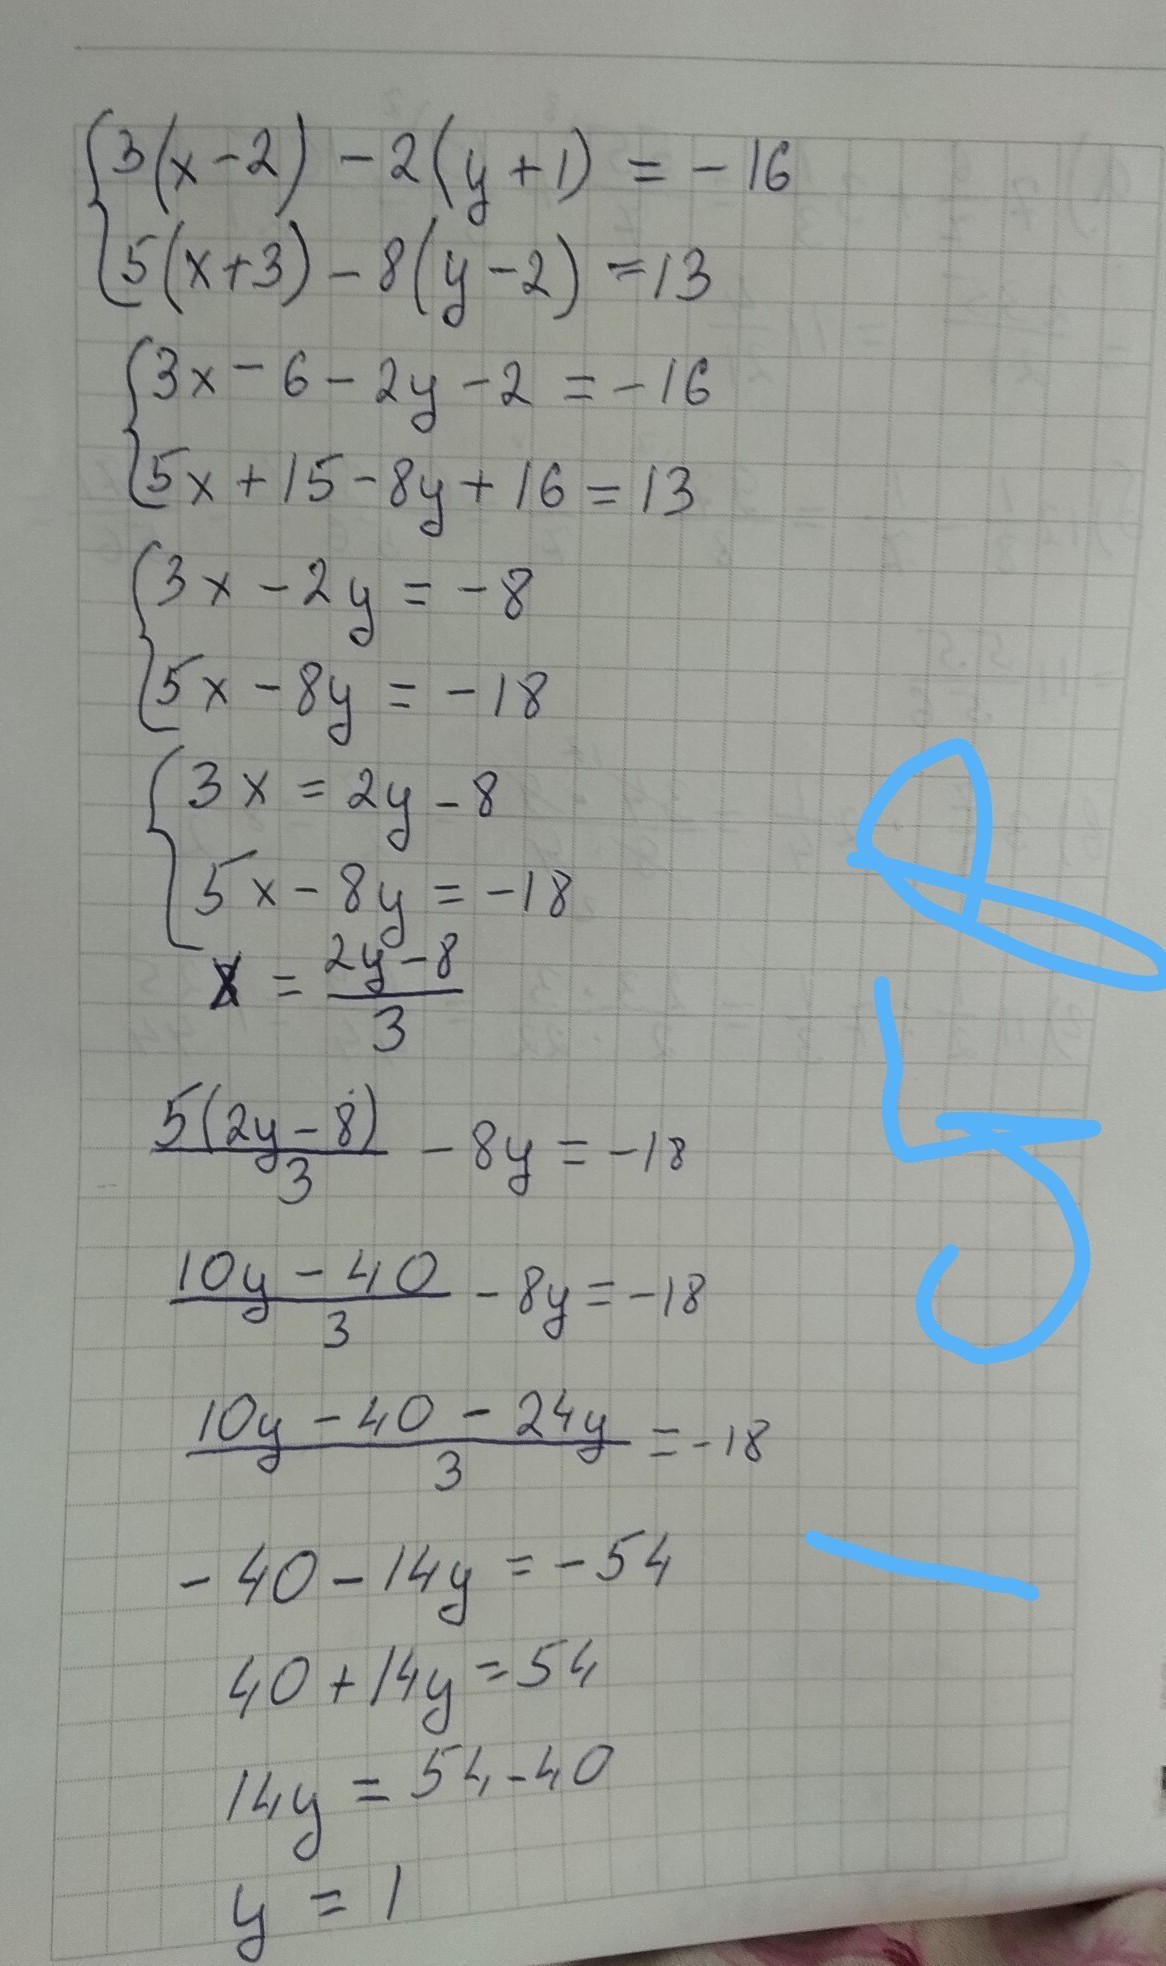 3(x-2) - 2(y+1) = -16
5(x+3) - 8(y-2) = 13
3x - 6 - 2y - 2 = -16
5x + 15 - 8y + 16 = 13
3x - 2y = -8
5x - 8y = -18
3x = 2y - 8
5x - 8y = -18
x = (2y-8)/3
5(2y-8)/3 - 8y = -18
(10y - 40)/3 - 8y = -18
(10y - 40 - 24y)/3 = -18
-40 - 14y = -54
40 + 14y = 54
14y = 54 - 40
y = 1